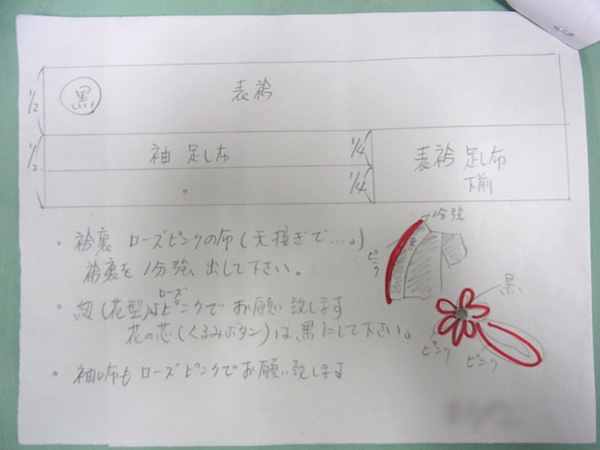 1/2 黒 表衿
1/2 袖 足し布 1/4 表衿 足し布
〃 1/4 下前
・衿裏 ローズピンクの布(天接ぎで…。)
衿裏を1分強、出して下さい。
1分強
ピンク
黒
・紐(花型)はローズピンクでお願い致します
花の芯(くるみボタン)は黒にして下さい。
黒
ピンク ピンク
・袖口布もローズピンクでお願い致します